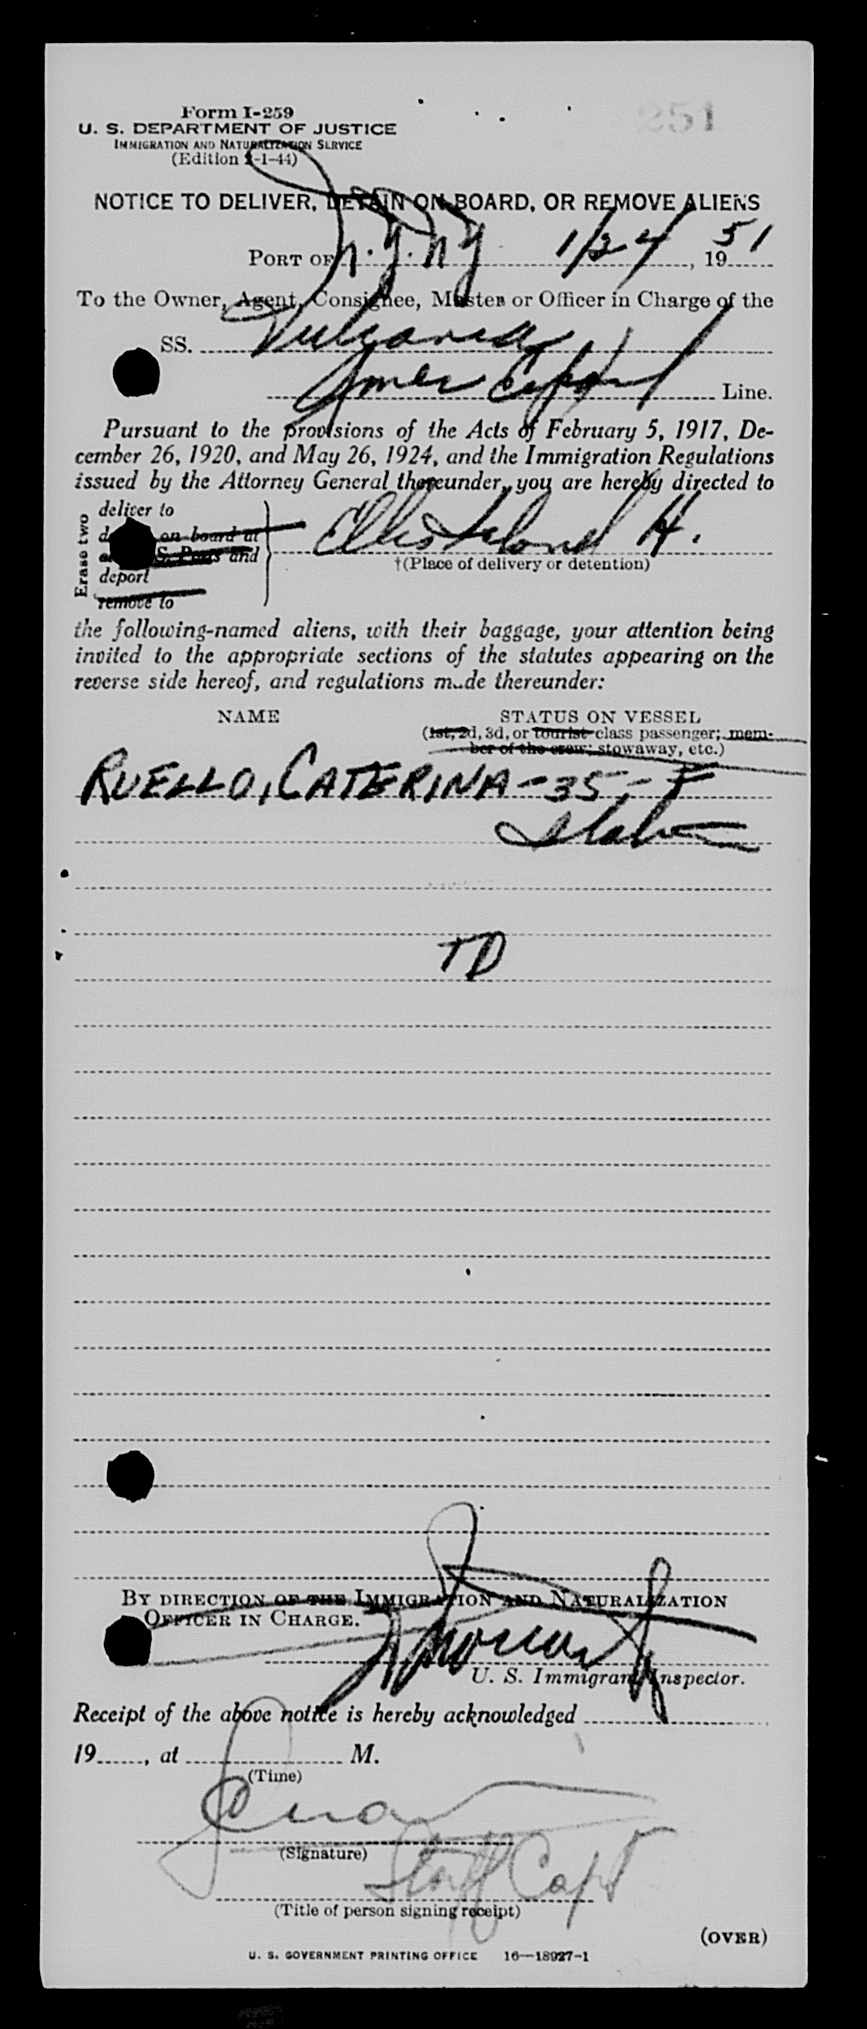 251
Form I-259
U. S. DEPARTMENT OF JUSTICE
IMMIGRATION AND NATURALIZATION SERVICE
(Edition 2-1-44)
NOTICE TO DELIVER, DETAIN ON BOARD, OR REMOVE ALIENS
PORT OF N.Y. NY 1/24, 1951
To the Owner, Agent, Consignee, Master or Officer in Charge of the
SS. Vulcania
Amer Export Line.
Pursuant to the provisions of the Acts of February 5, 1917, De-
cember 26, 1920, and May 26, 1924, and the Immigration Regulations
issued by the Attorney General thereunder, you are hereby directed to
Erase two
deliver to
on board at
S. Ports and
deport
remove to
Ellis Island H.
†(Place of delivery or detention)
the following-named aliens, with their baggage, your attention being
invited to the appropriate sections of the statutes appearing on the
reverse side hereof, and regulations made thereunder:
NAME STATUS ON VESSEL
(1st, 2d, 3d, or tourist-class passenger; mem-
ber of the crew; stowaway, etc.)
RUELLO, CATERINA - 35 - F
Italian
TD
BY DIRECTION OF THE IMMIGRATION AND NATURALIZATION
OFFICER IN CHARGE.
U. S. Immigrant Inspector.
Receipt of the above notice is hereby acknowledged
19, at M.
(Time)
(Signature)
Staff Capt
(Title of person signing receipt)
(OVER)
U. S. GOVERNMENT PRINTING OFFICE 16—18927-1